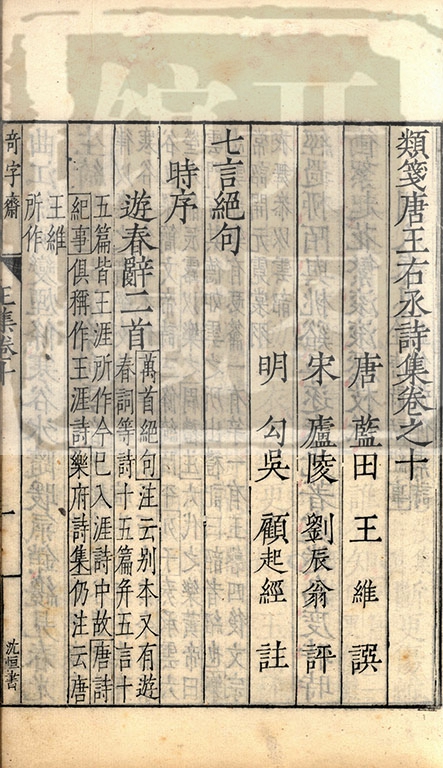 類箋唐王右丞詩集卷之十
唐藍田王維譔
宋廬陵劉辰翁評
明勾吳顧起經註
七言絕句
時序
遊春辭二首
萬首絕句注云別本又有遊
春詞等詩十五篇并五言十
五篇皆王涯所作今已入涯詩中故唐詩
紀事俱稱作王涯詩樂府詩集仍注云唐
王維
所作
奇字齋
王集卷十
一
沈恒書